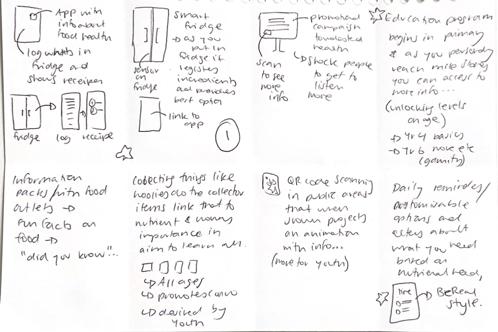 App with
info about
food health
log whats in
fridge and
shows recipes
fridge
log
recipe
Smart
fridge
↳ as you
put in
fridge it
registers
ingredients
and provides
best option
sensor on
fridge
link to
app
1
promotional
campaign
health
↳ Shock people
to get to
listen
more
scan
to see
more
info
Education program
begins in primary
& as you
reach milestones
you can access to
more info...
(unlocking levels
on age)
→ yr 4 basics
→ yr 6 more etc
(gamify)
Information
packs with food
outlets →
fun facts on
food →
"did you know...
Collecting things like
woolies do the collector
items link that to
nutrient &
importance in
aim to learn all.
↳ All ages
↳ promotes
↳ desired by
youth
QR code scanning
in public areas
that when
shown projects
an animation
with info...
(more for youth)
Daily reminder/
customizable
options and
about
what you need
based on
nutritional need,
→ BeReal
style.